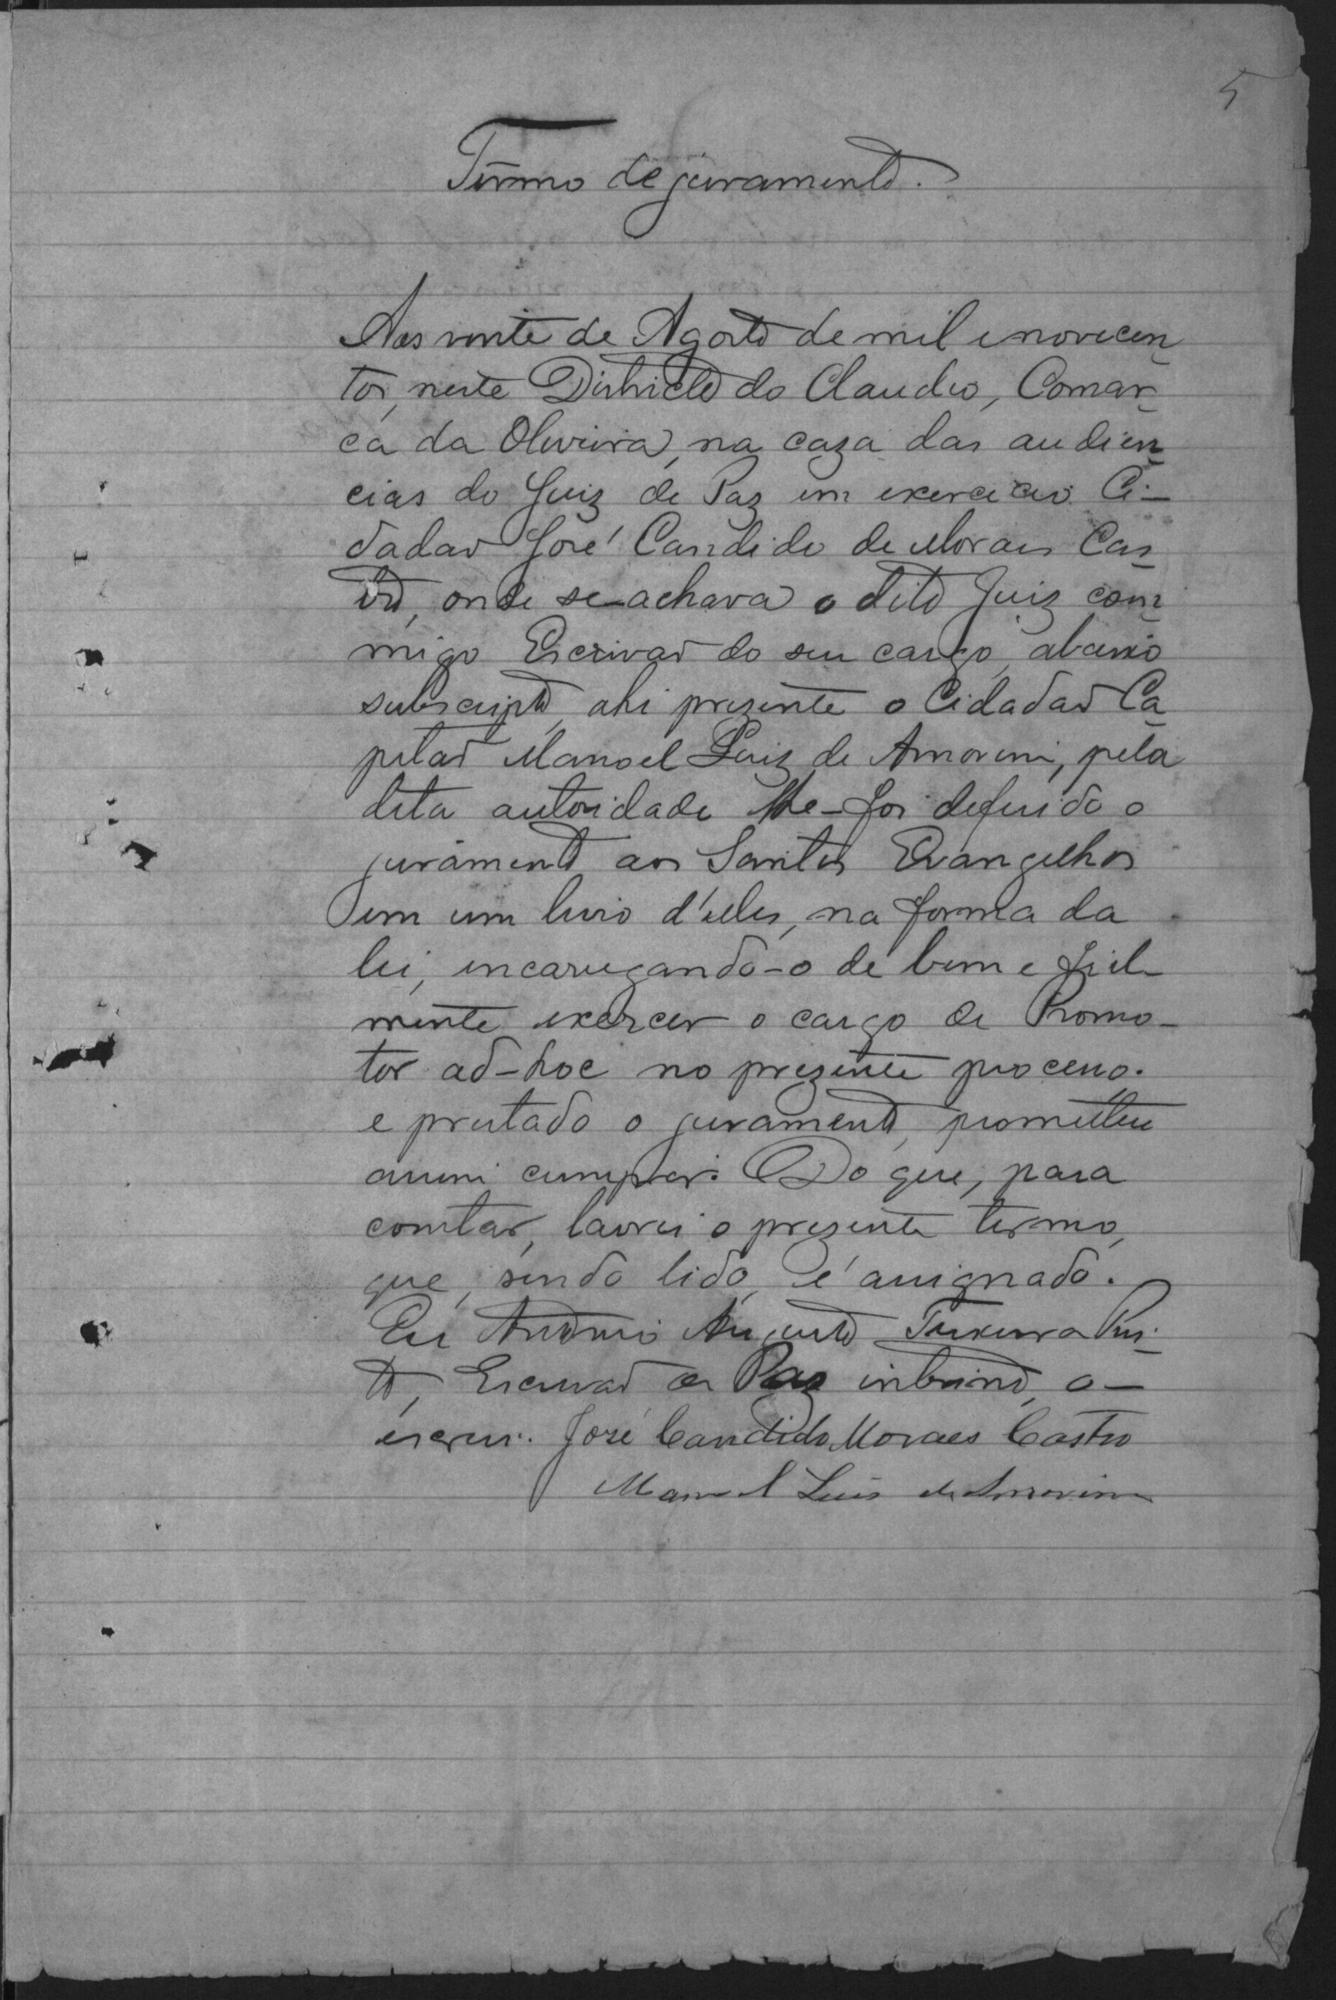 5
Termo de juramento.
Aos vinte de Agosto de mil e novecen
tos, neste Districto do Claudio, Comar
ca da Oliveira, na caza das audien
cias do Juiz de Paz em exercicio Ci-
dadão José Candido de Moraes Cas
tro, onde se achava o dito Juiz com
migo Escrivão do seu cargo, abaixo
subscripto, ahi prezente o Cidadão Ca
pitão Manoel Luiz de Amorim, pela
dita autoridade lhe-foi deferido o
juramento aos Santos Evangelhos
em um livro d'elles, na forma da
lei, encarregando-o de bem e fiel-
mente exercer o cargo de Promo-
tor ad-hoc no prezente processo.
e prestado o juramento, prometteu
assim cumprir. Do que, para
constar, lavrei o prezente termo,
que, sendo lido, é assignado.
Eu Antonio Augusto Teixeira Pin-
to, Escrivão de Paz interino, o-
escrevi. José Candido Moraes Castro
Manoel Luis de Amorim